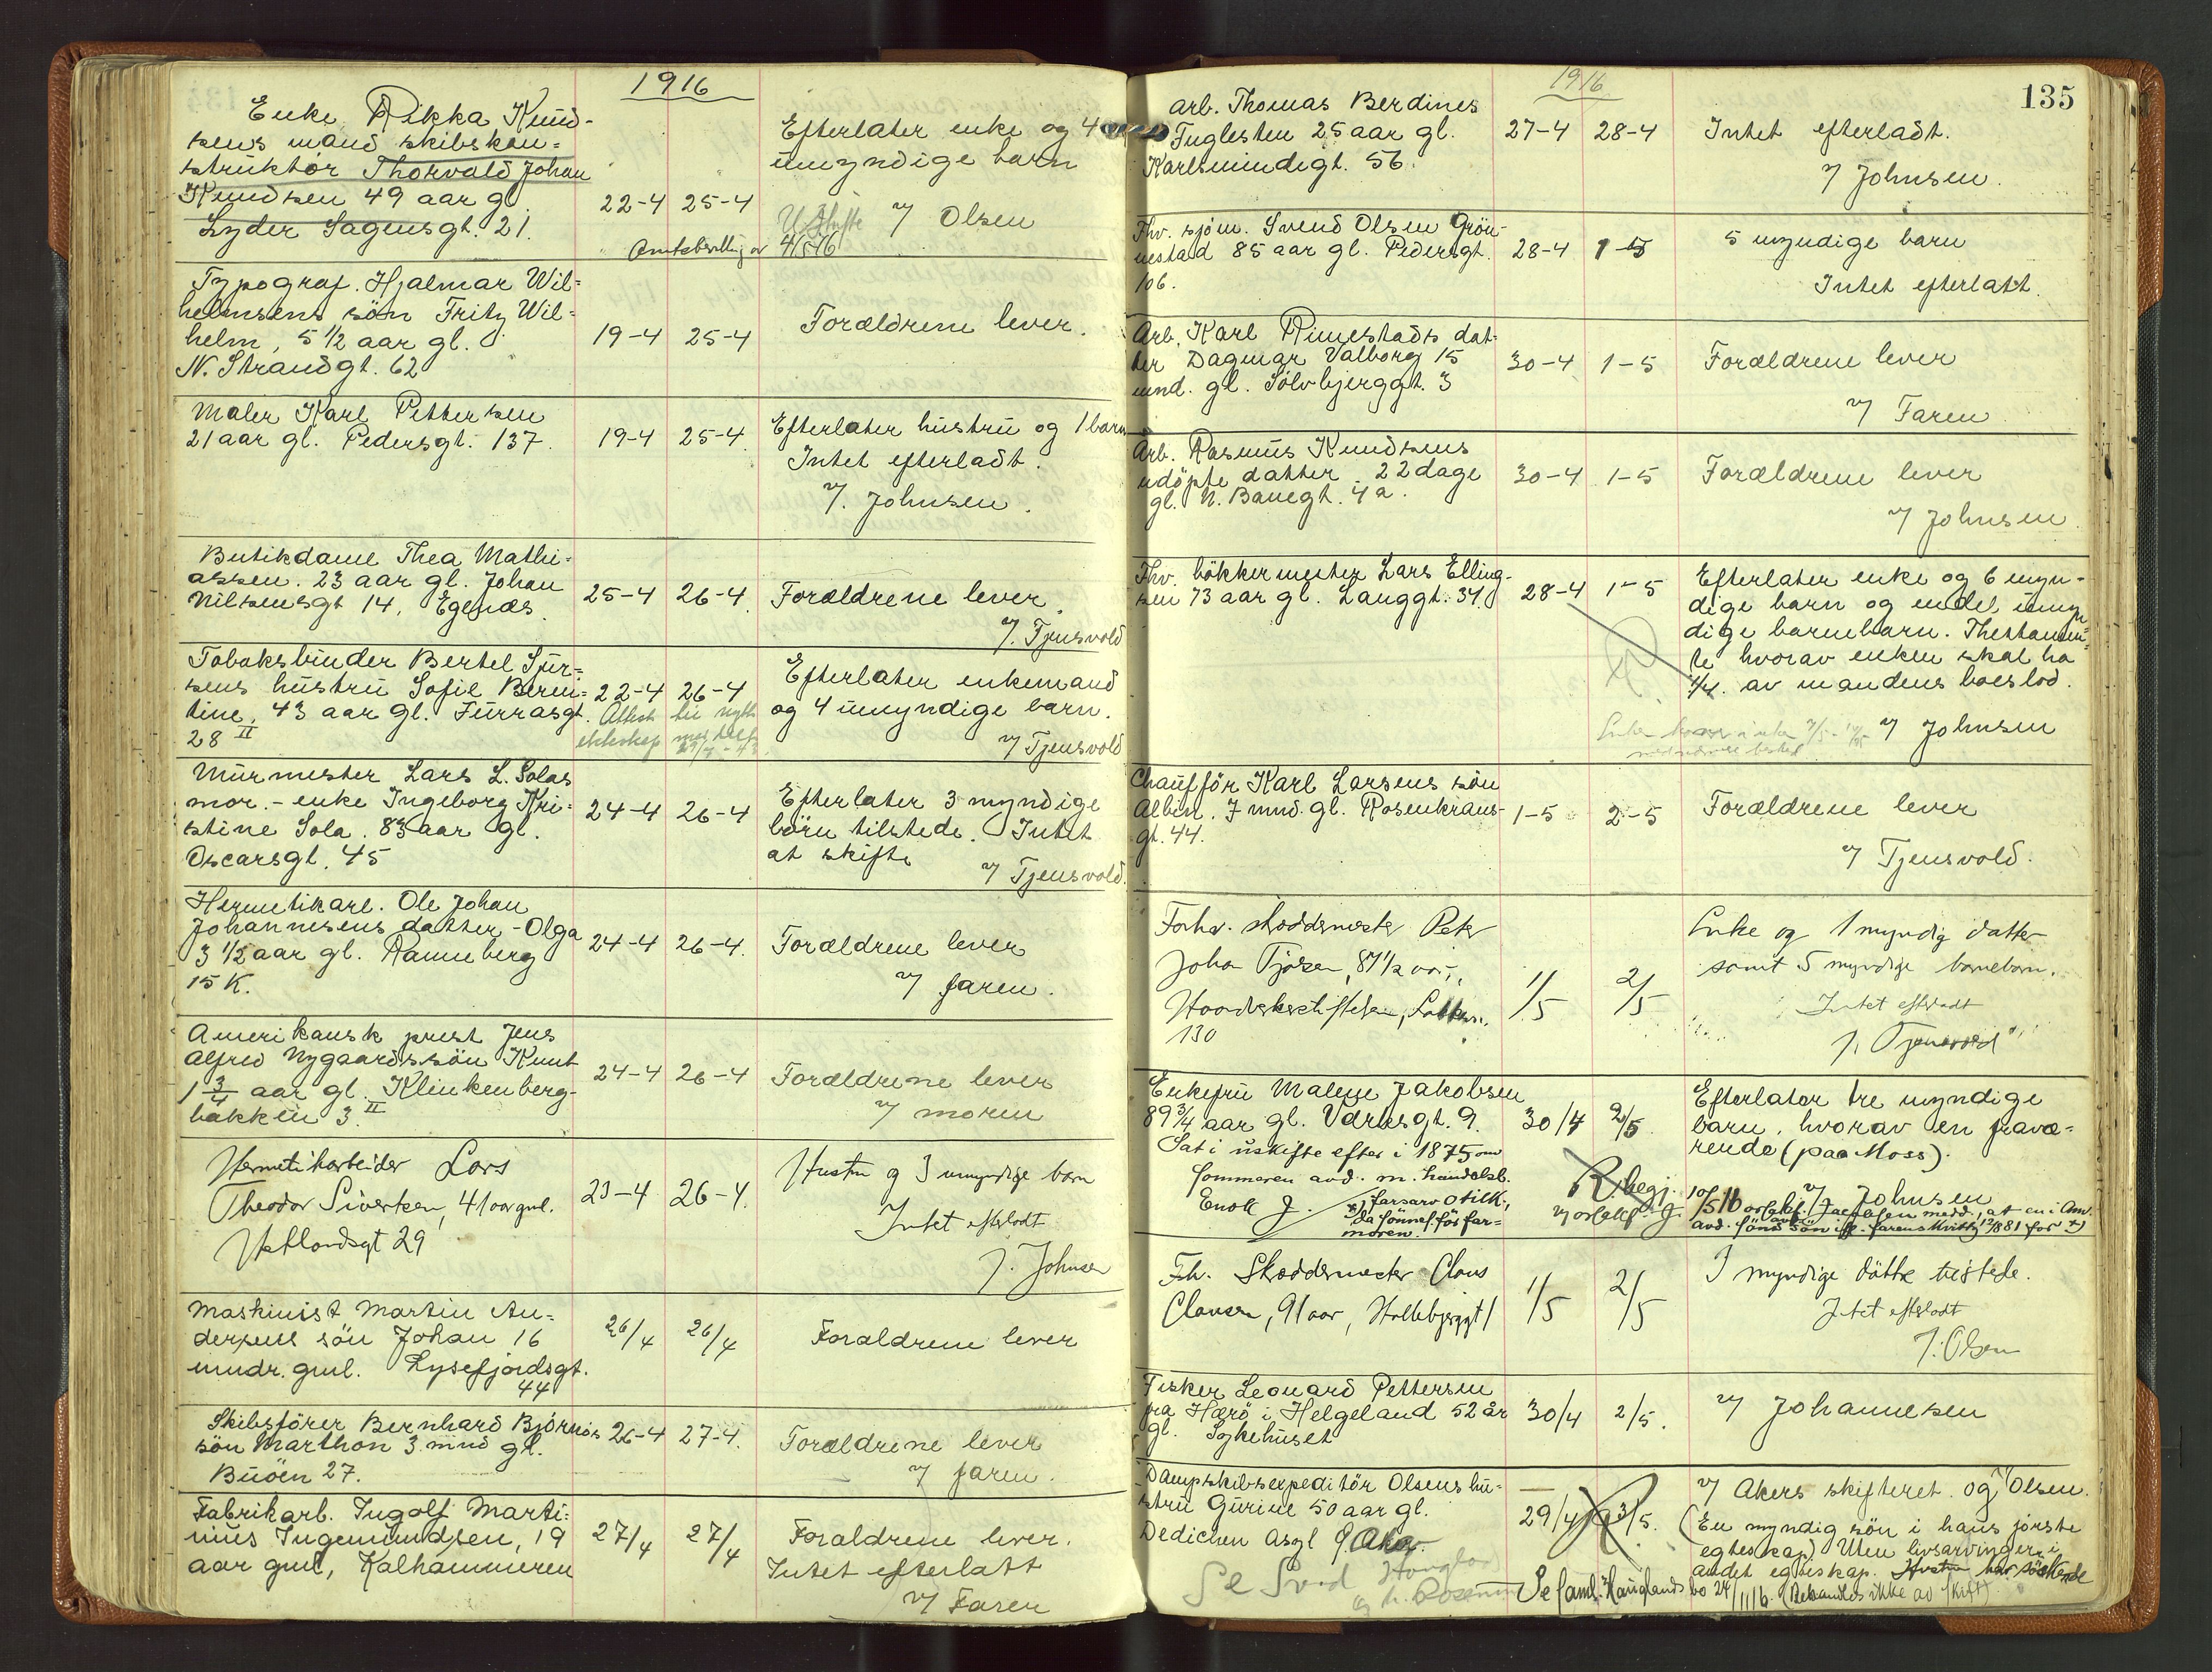 1916
Enke Rikka Knud-
sens mand skibskon-
struktør Thorvald Johan
Knudsen 49 aar gl
Lyder Sagensgt. 21.
22-4 25-4
Efterlater enke og 4
umyndige barn
Uskifte v/ Olsen
Amtsbevilling av 4/5 16
Typograf. Hjalmar Wil-
helmsens søn Fritz Wil-
helm, 5 1/2 aar gl.
N. Strandgt. 62
19-4 25-4
Forældrene lever.
Maler Karl Pettersen
21 aar gl. Pedersgt. 137.
19-4 25-4
Efterlater hustru og 1 barn
Intet efterladt.
v/. Johnsen.
Butikdame Thea Mathi-
assen. 23 aar gl. Johan
Nilsensgt 14. Egenæs.
25-4 26-4.
Forældrene lever.
v/. Tjensvold
Tobaksbinder Bertel Sjur-
sens hustru Sofie Beren-
tine, 43 aar gl. Furrasgt.
28 II
22-4 26-4
Attest til nytt
ekteskap
Efterlater enkemand
og 4 umyndige barn.
v/ Tjensvold
Murmester Lars L. Solas
mor. - enke Ingeborg Kri-
stine Sola. 83 aar gl.
Oscarsgt. 45
24-4 26-4
Efterlater 3 myndige
børn tilstede. Intet
at skifte
v/ Tjensvold.
Hermetikarb. Ole Johan
Johannesens datter - Olga
3 1/2 aar gl. Ramneberg
15 K.
24-4 26-4.
Forældrene lever
v/ faren.
Amerikansk prest Jens
Alfred Nygaards søn Knut
1 3/4 aar gl. Klinkenberg-
bakken 3 II
24-4 26-4
Forældrene lever
v/ moren
Hermetikarbeider Lars
Theodor Sivertsen, 41 aar gml.
Vetlandsgt 29
23-4 26-4.
Hustru og 3 umyndige barn
Intet efterladt
v/. Johnsen
Maskinist Martin An-
dersens søn Johan 16
mndr. gml. Lysefjordsgt.
44
26/4 26/4
Forældrene lever
Skibsfører Bernhard Bjørnøs
søn Marthon 3 mnd gl.
Buøen 27.
26-4 27-4.
Forældrene lever
v/ faren.
Fabrikarb. Ingolf Marti-
nius Ingemundsen, 19
aar gml, Kalhammeren
27/4 27/4
Forældrene lever.
Intet efterlatt
v/ Faren
1916
135
Arb. Thomas Berdines
Fuglesten 25 aar gl.
Karlsmindegt. 56.
27-4 28-4
Intet efterladt.
v/ Johnsen.
Fhv. sjøm. Svend Olsen Grøn-
nestad 85 aar gl. Pedersgt.
106.
28-4 1-5
5 myndige barn
Intet efterlatt
Arb. Karl Rimestads dat-
ter Dagmar Valborg 15
mnd. gl. Sølvbjerggt. 3
30-4 1-5
Forældrene lever
v/ Faren
Arb. Rasmus Knudsens
udøpte datter 22 dage
gl. N. Banegt. 4a.
30-4 1-5
Forældrene lever
v/ Johnsen.
Fhv. bøkkermester Lars Elling-
sen 73 aar gl. Langgt. 34.
28-4 1-5
Efterlater enke og 6 myn-
dige barn og endel umyn-
dige barnebarn. Thestamen-
te hvorav enken skal ha
1/4. av mandens boeslod.
v/ Johnsen
Chauffør Karl Larsens søn
Albin. 7 mnd. gl. Rosenkrans-
gt. 44.
1-5 2-5
Forældrene lever
v/ Tjensvold.
Forhv. skræddermester Peter
Johan Tjøsen, 87 1/2 aar,
Haandverkerstiftelsen,
130
1/5 2/5
Enke og 1 myndig datter
samt 5 myndige barnebarn.
Intet efterladt
v/. Tjensvold
Enkefru Malene Jakobsen
89 3/4 aar gl. Vdrksgt. 9.
Sat i uskifte efter i 1875 om
sommeren avd. m. handelsb.
Enok J.
30/4 2/5
Efterlater tre myndige
barn, hvorav en fravæ-
rende (paa Moss).
v/ Johnsen
x) farsarv otilk.,
da sønnef før far-
moren.
Fh. Skræddermester Claus
Clausen, 91 aar, Stollebjerggt 1
1/5 2/5
3 myndige døttre tilstede.
Intet efterladt
v/. Olsen
Fisker Leonard Pettersen
fra Herø i Helgeland 52 år
gl. Sykehuset
30/4 2/5.
v/ Johannesen
Dampskibsexpeditør Olsens hu-
stru Gurine 50 aar gl.
Dedichen Asyl Aker
29/4 3/5.
v/ Akers skifteret. og Olsen.
(En myndig søn i hans første
egteskap) Uten livsarvinger i
andet egteskap. Hustru har søskende
Se saml. Hauglands bo 24/11 16. (Behandles ikke av skift)